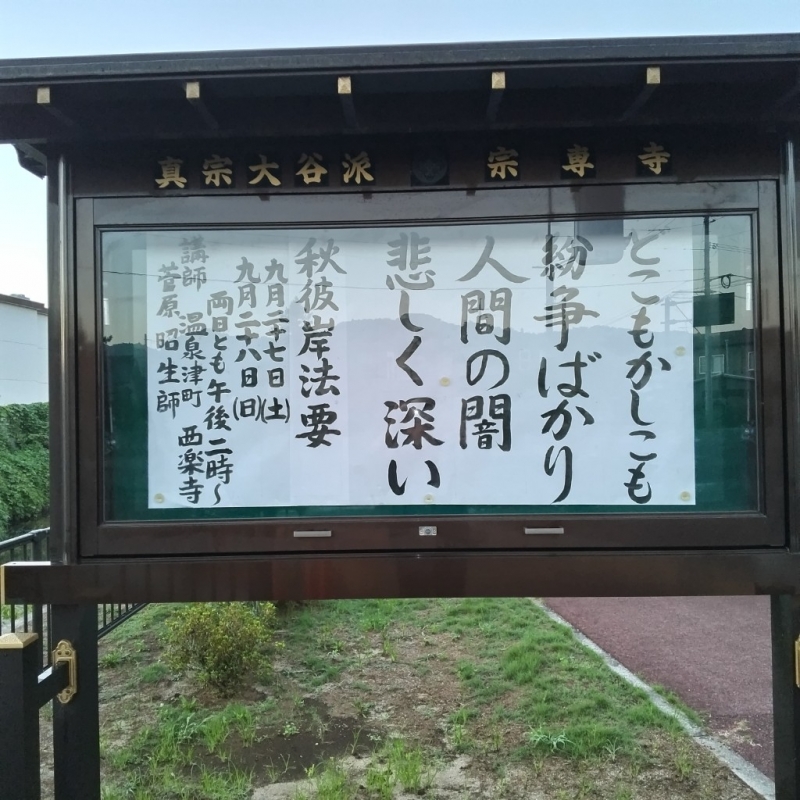 真宗大谷派 宗専寺
どこもかしこも
紛争ばかり
人間の闇
悲しく深い
秋彼岸法要
九月二十七日(土)
九月二十八日(日)
両日とも午後二時～
講師 温泉津町 西楽寺
菅原昭生師